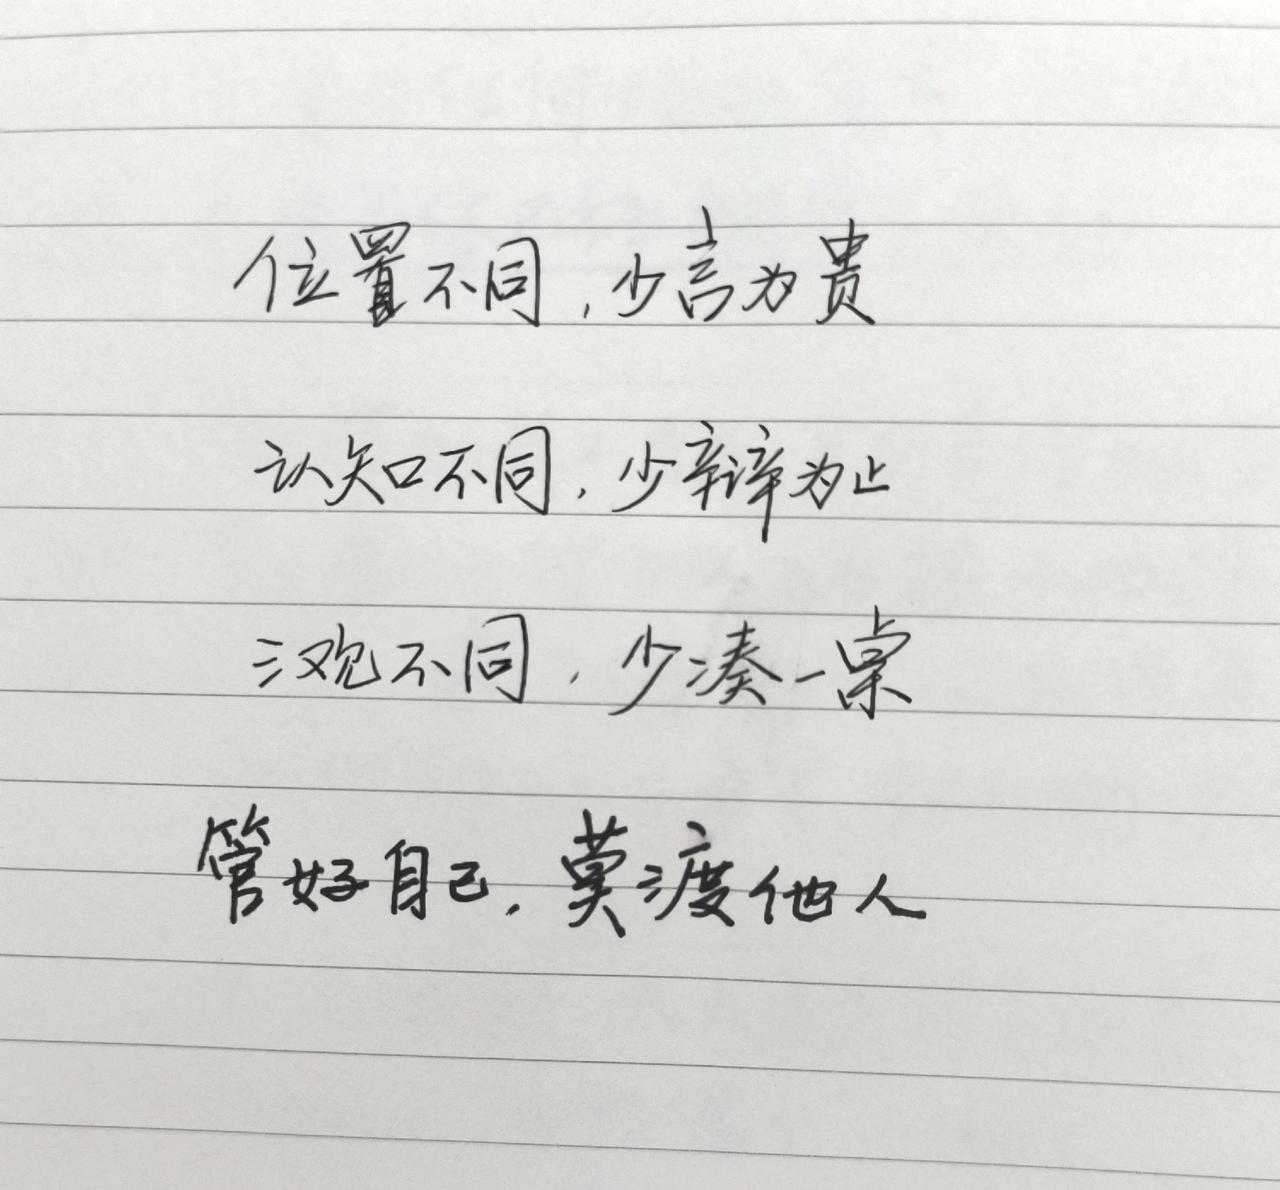 位置不同，少言为贵
认知不同，少辩为止
三观不同，少凑一桌
管好自己，莫渡他人